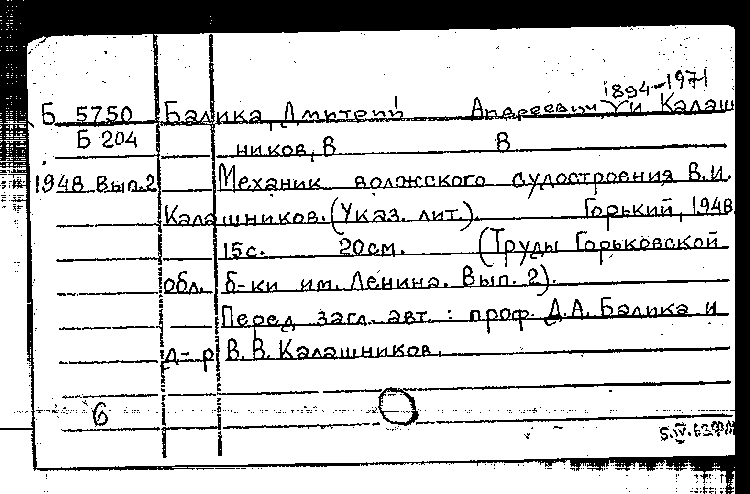 1894-1971
Б 5750 Балика, Дмитрий Андреевич, и Калаш
Б 204 ников, В В
1948 Вып.2 Механик волжского судостроения В.И.
Калашников. (Указ. лит.). Горький, 1948
15с. 20см. (Труды Горьковской
обл. б-ки им. Ленина. Вып. 2).
Перед загл. авт.: проф. Д.А. Балика и
д-р В.В. Калашников.
6
5.IV.63